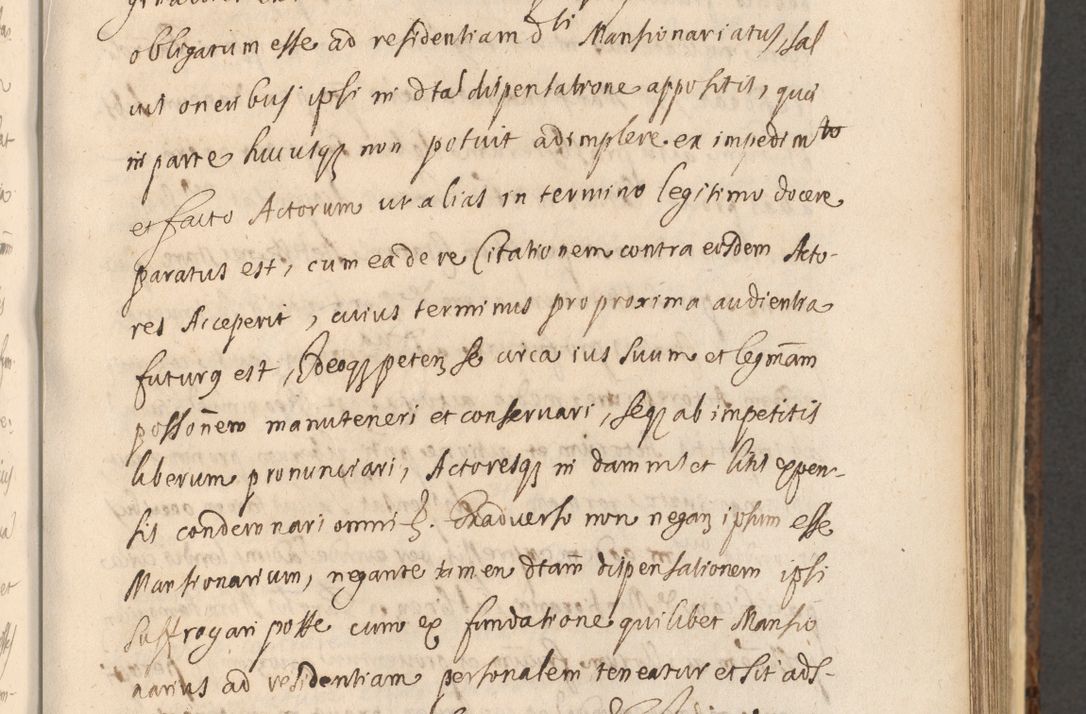 obligatum esse ad residentiam dti Mansionariatus, sal
uis oneribus ipsi in dta dispensatione appositis, quis
in parte hucusq non potuit adimplere ex impedimto
et facto Actorum ut alias in termino legitimo docere
paratus est, cum eadere Citationem contra eosdem Acto-
res Acceperit, cuius terminus pro proxima audientia
futurq est, Ideoq petens se circa ius suum et legmam
possonem manuteneri et conseruari, seq ab impetitis
liberum pronunciari, Actoresq in damnis et litis expen-
sis condemnari omni
Ex aduerso non negans ipsum esse
Mansionarium, negante tamen dtam dispensationem ipsi
suffragari posse cum ex fundatione quilibet Mansio
narius ad residentiam personalem teneatur et sit ads-